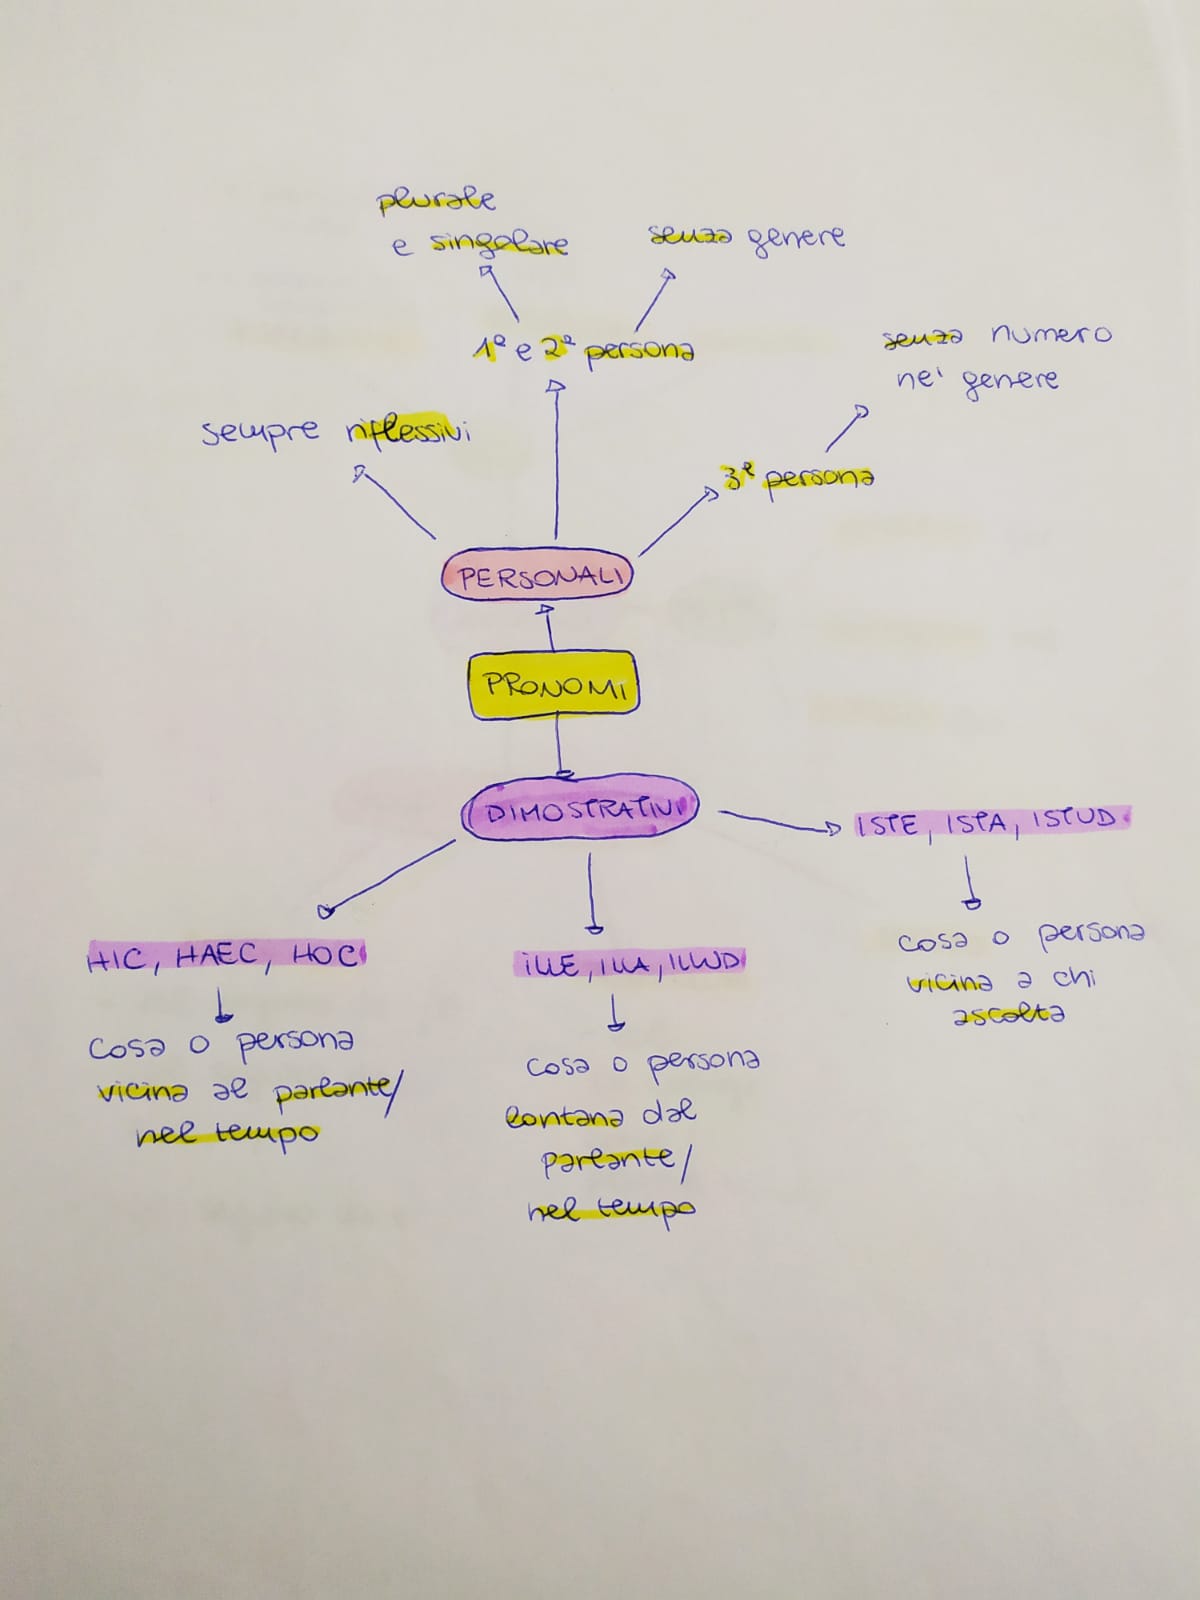 plurale
e singolare
senza genere
1ª e 2ª persona
senza numero
ne' genere
sempre riflessivi
3ª persona
PERSONALI
PRONOMI
DIMOSTRATIVI
ISTE, ISTA, ISTUD
cosa o persona
vicina a chi
ascolta
HIC, HAEC, HOC
cosa o persona
vicina al parlante/
nel tempo
iLLE, ILLA, ILLUD
cosa o persona
lontana dal
parlante/
nel tempo